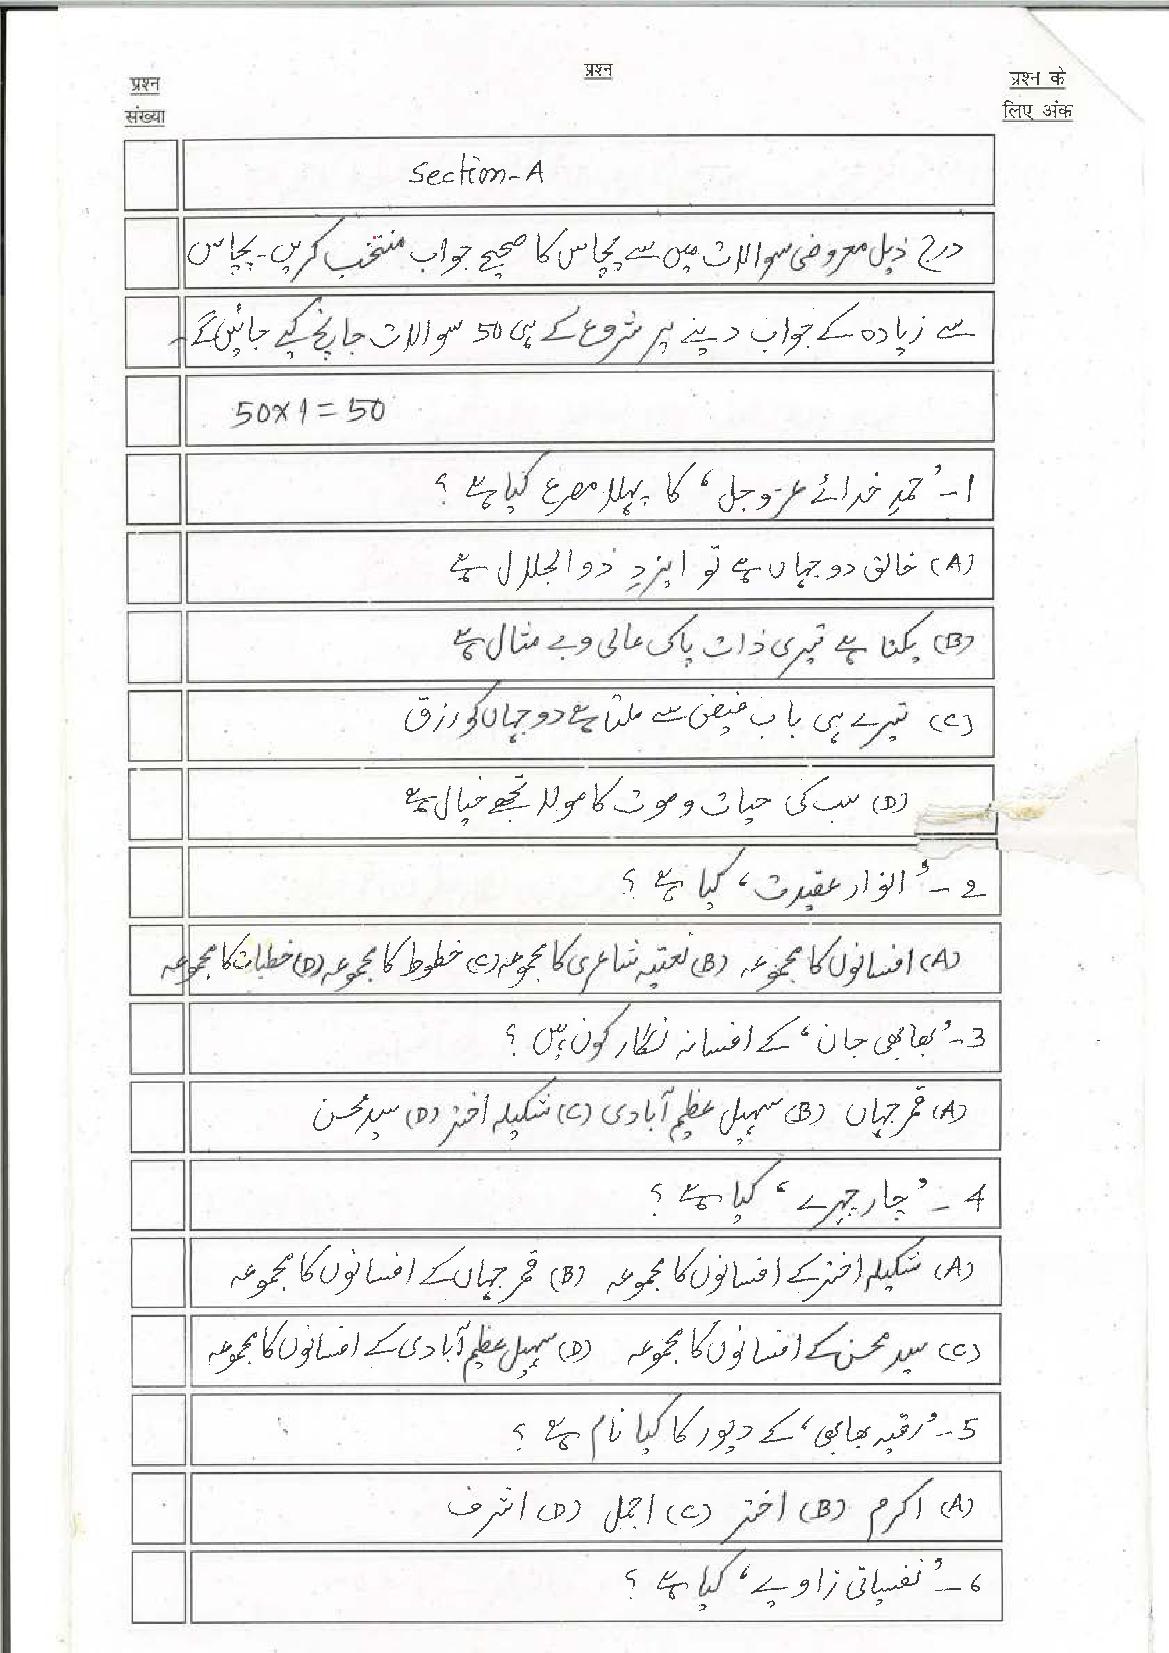 प्रश्न संख्या
प्रश्न
प्रश्न के लिए अंक
Section-A
درج ذیل معروضی سوالات میں سے پچاس کا صحیح جواب منتخب کریں۔ پچاس
سے زیادہ کے جواب دینے پر شروع کے ہی 50 سوالات جانچ کیے جائیں گے۔
50x1=50
1۔ 'حمدِ خدائے عزوجل' کا پہلا مصرع کیا ہے ؟
(A) خالق دو جہاں ہے تو ایزدِ ذوالجلال ہے
(B) یکتا ہے تیری ذات پاک عالی و بے مثال ہے
(C) تیرے ہی باب فیض سے ملتا ہے دو جہاں کو رزق
(D) سب کی حیات و موت کا مولا تجھے خیال ہے
2۔ 'انوار عقیدت' کیا ہے ؟
(A) افسانوں کا مجموعہ (B) نعتیہ شاعری کا مجموعہ (C) خطوط کا مجموعہ (D) خطبات کا مجموعہ
3۔ 'بھابھی جان' کے افسانہ نگار کون ہیں ؟
(A) قمر جہاں (B) سہیل عظیم آبادی (C) شکیلہ اختر (D) سید محسن
4۔ 'چار چہرے' کیا ہے ؟
(A) شکیلہ اختر کے افسانوں کا مجموعہ (B) قمر جہاں کے افسانوں کا مجموعہ
(C) سید محسن کے افسانوں کا مجموعہ (D) سہیل عظیم آبادی کے افسانوں کا مجموعہ
5۔ 'رقیہ بھابھی' کے دیور کا کیا نام ہے ؟
(A) اکرم (B) اختر (C) اجمل (D) اشرف
6۔ 'نفسیاتی زاویے' کیا ہے ؟